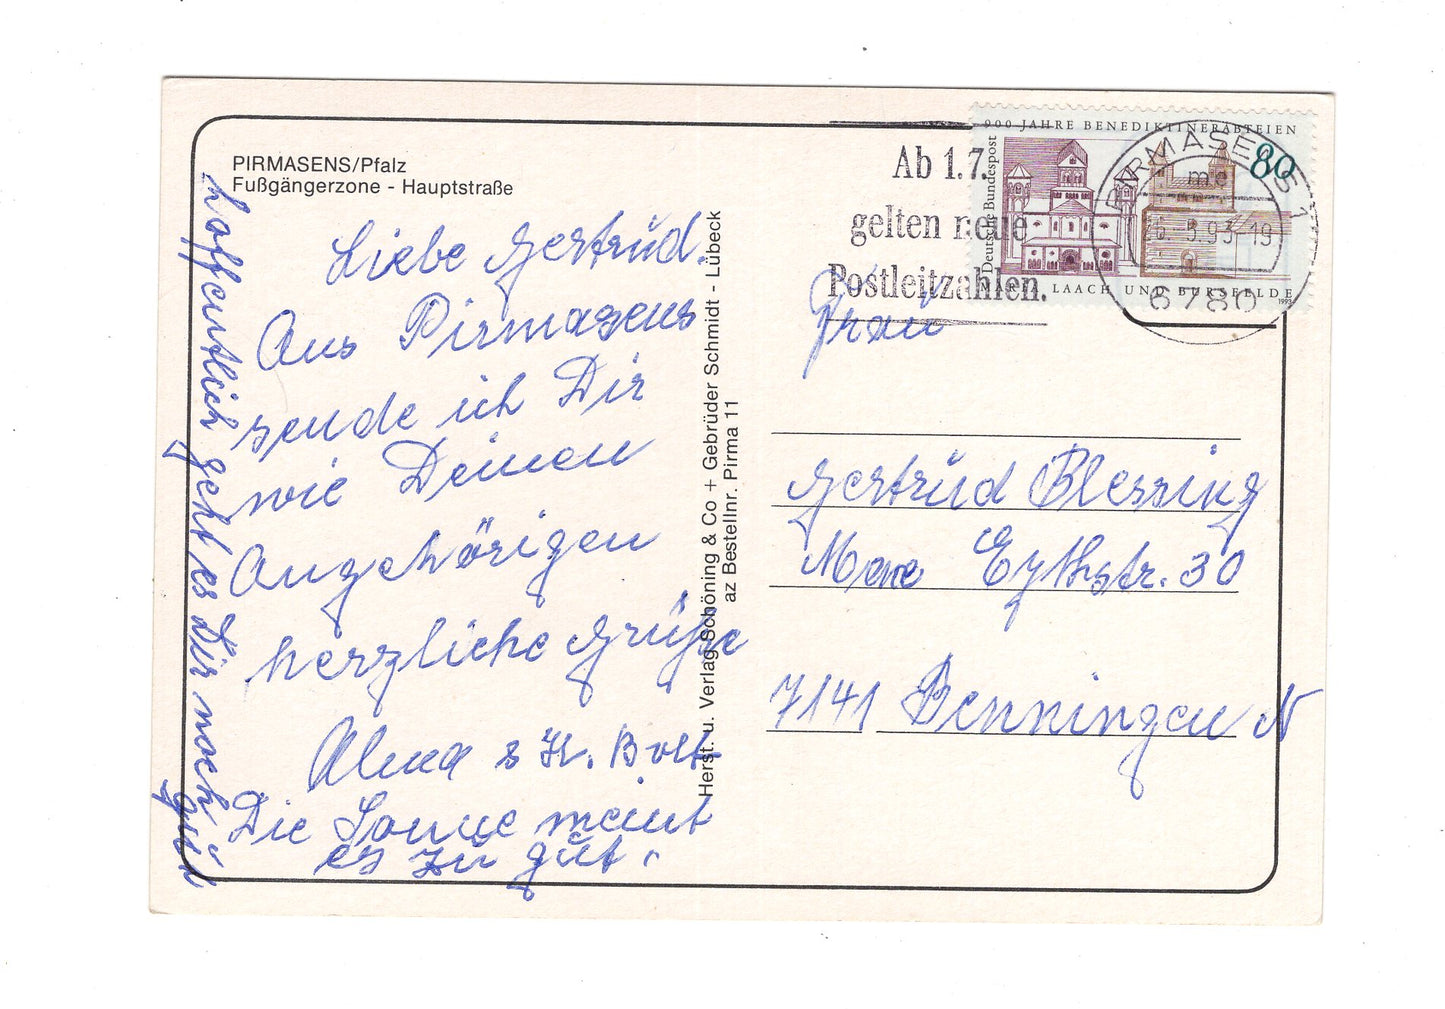 PIRMASENS/Pfalz
Fußgängerzone - Hauptstraße
Liebe Gertrud.
Aus Pirmasens
sende ich Dir
wie Deinen
Angehörigen
herzliche Grüße
Die Sonne meint
es zu gut.
hoffentlich geht es Dir noch
gut
Herst. u. Verlag Schöning & Co + Gebrüder Schmidt - Lübeck
az Bestellnr. Pirma 11
Ab 1.7.
gelten neue
Postleitzahlen.
900 JAHRE BENEDIKTINERABTEIEN
80
Deutsche Bundespost
MARIA LAACH UND BURSFELDE
1993
PIRMASENS 1
mc
5.93-19
6780
Frau
Gertrud Blessing
Eythstr. 30
7141 Benningen N